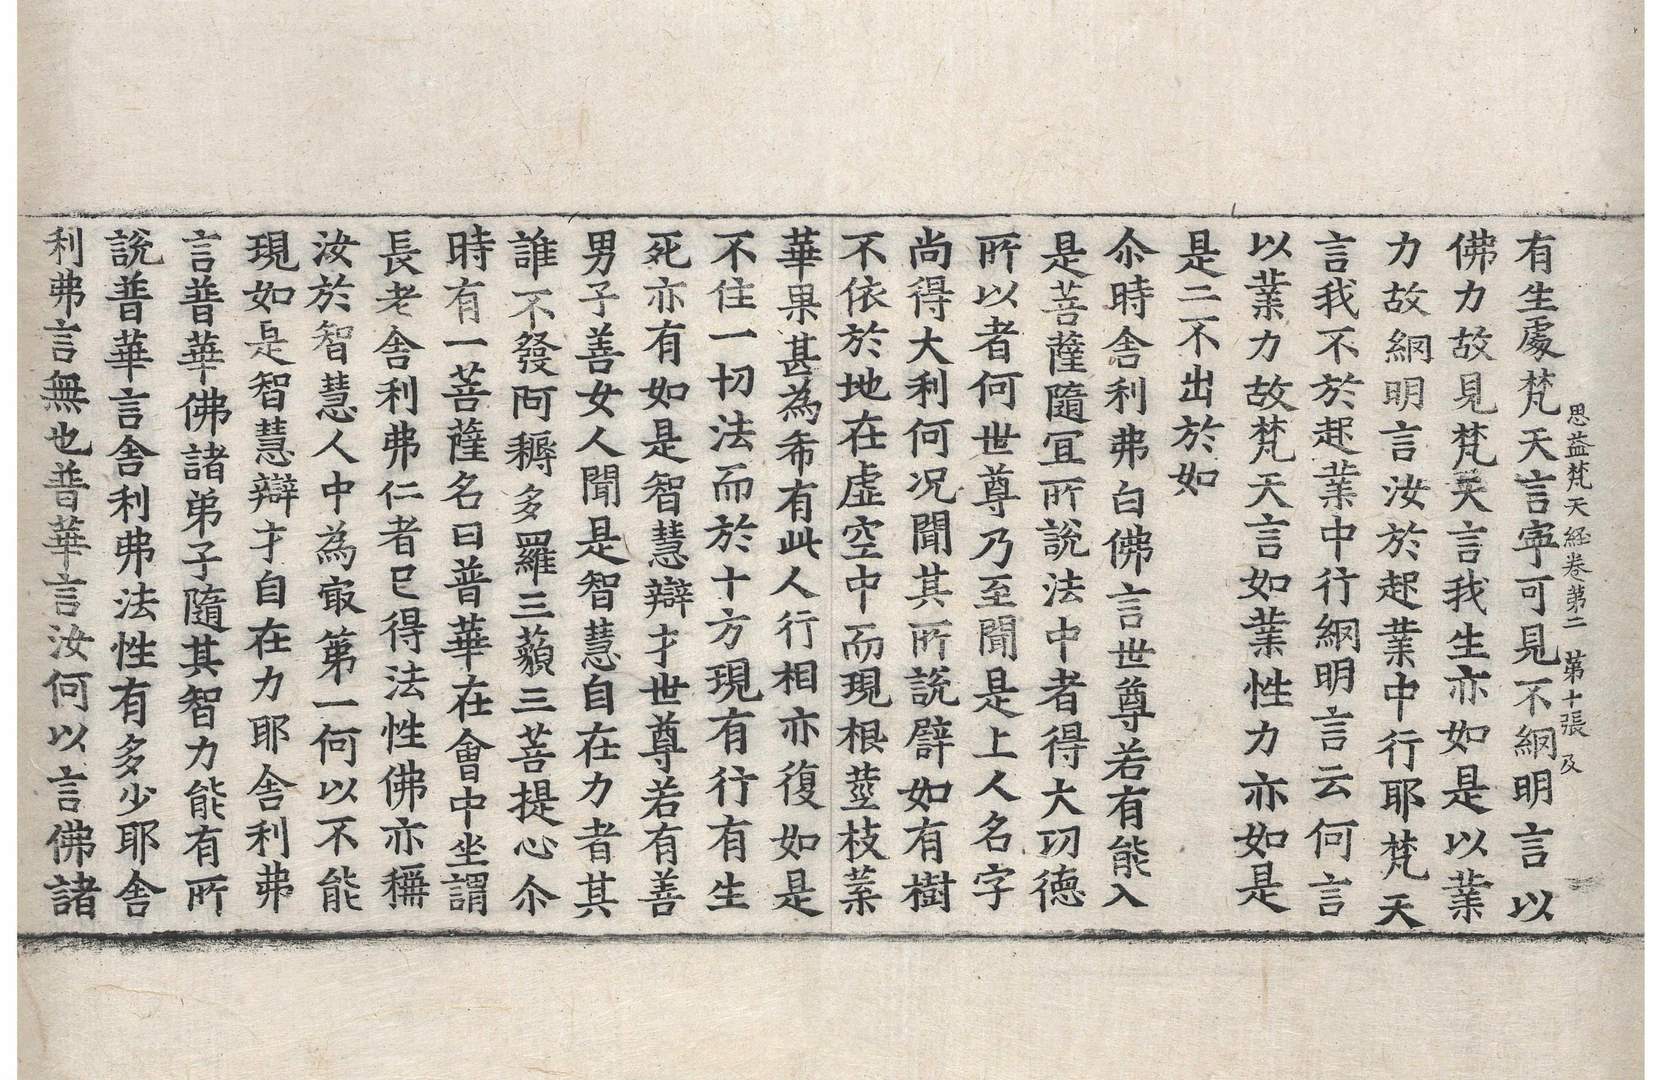 思益梵天經卷苐二　苐十張　及
有生處梵天言寧可見不網明言以
佛力故見梵天言我生亦如是以業
力故網明言汝於起業中行耶梵天
言我不於起業中行網明言云何言
以業力故梵天言如業性力亦如是
是二不出於如
尒時舎利弗白佛言世尊若有能入
是菩薩隨冝所說法中者得大功德
所以者何世尊乃至聞是上人名字
尚得大利何況聞其所說譬如有樹
不依於地在虛空中而現根莖枝葉
華果甚為希有此人行相亦復如是
不住一切法而於十方現有行有生
死亦有如是智慧辯才世尊若有善
男子善女人聞是智慧自在力者其
誰不發阿耨多羅三藐三菩提心尒
時有一菩薩名曰普華在會中坐謂
長老舎利弗仁者已得法性佛亦稱
汝於智慧人中為㝡苐一何以不能
現如是智慧辯才自在力耶舎利弗
言普華佛諸弟子隨其智力能有所
說普華言舎利弗法性有多少耶舎
利弗言無也普華言汝何以言佛諸